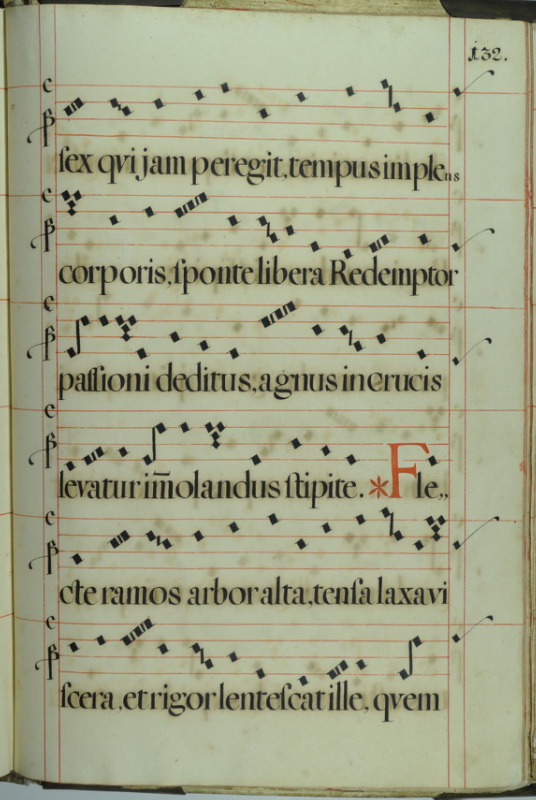 132.
ſex qvi jam peregit, tempus implens
corporis, ſponte libera Redemptor
paſſioni deditus, agnus in crucis
levatur im̅olandus ſtipite. * Fle,,
cte ramos arbor alta, tenſa laxa vi
ſcera, et rigor lenteſcat ille, qvem